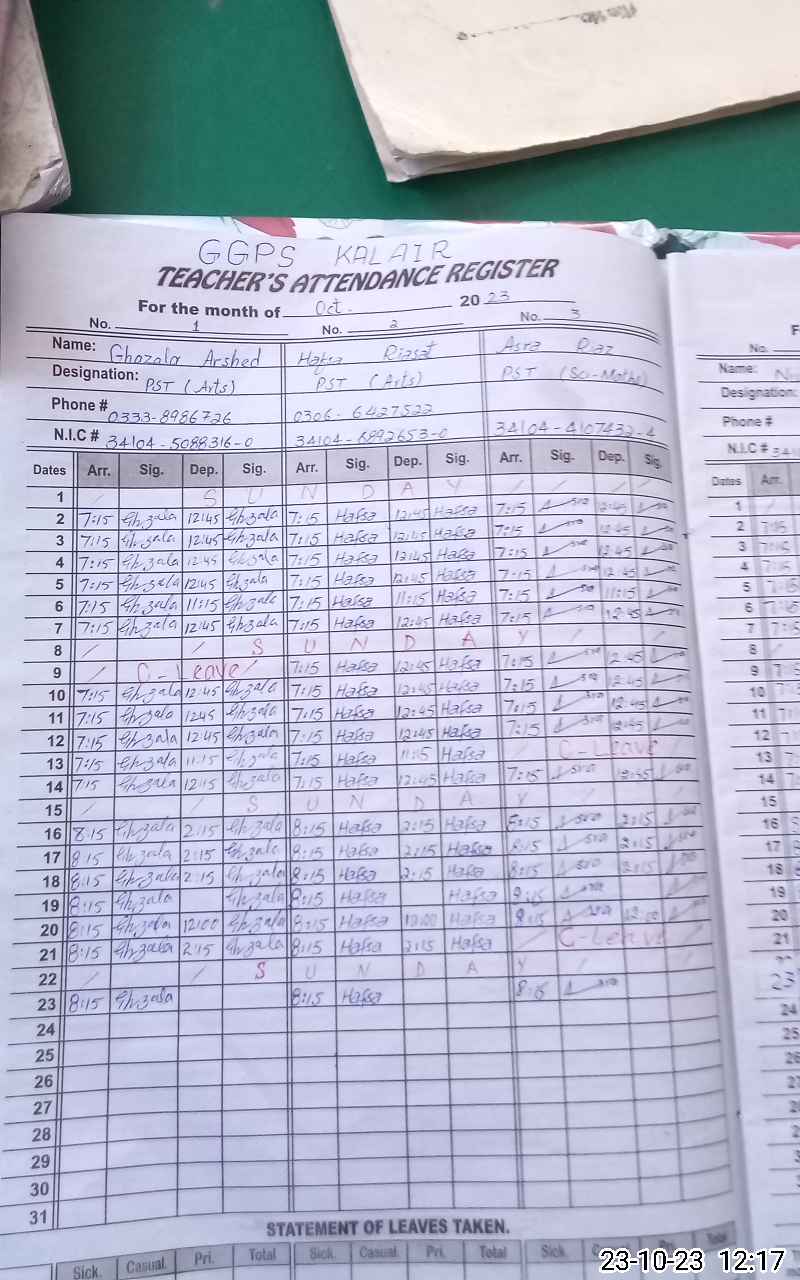 GGPS KALAIR
TEACHER'S ATTENDANCE REGISTER
For the month of Oct. 2023
No. 1 No. 2 No. 3
Name: Ghazala Arshed Hafsa Riasat Asra Riaz
Designation: PST (Arts) PST (Arts) PST (Sci-Maths)
Phone # 0333-8986726 0306-6427522
N.I.C # 34104-5088316-0 34104-6892653-0 34104-4107432-4
Dates Arr. Sig. Dep. Sig. Arr. Sig. Dep. Sig. Arr. Sig. Dep. Sig.
1 S U N D A Y
2 7:15 Ghzala 12:45 Ghzala 7:15 Hafsa 12:45 Hafsa 7:15 12:45
3 7:15 Ghzala 12:45 Ghzala 7:15 Hafsa 12:45 Hafsa 7:15 12:45
4 7:15 Ghzala 12:45 Ghzala 7:15 Hafsa 12:45 Hafsa 7:15 12:45
5 7:15 Ghzala 12:45 Ghzala 7:15 Hafsa 12:45 Hafsa 7:15 12:45
6 7:15 Ghzala 11:15 Ghzala 7:15 Hafsa 11:15 Hafsa 7:15 11:15
7 7:15 Ghzala 12:45 Ghzala 7:15 Hafsa 12:45 Hafsa 7:15 12:45
8 S U N D A Y
9 C-Leave 7:15 Hafsa 12:45 Hafsa 7:15 12:45
10 7:15 Ghzala 12:45 Ghzala 7:15 Hafsa 12:45 Hafsa 7:15 12:45
11 7:15 Ghzala 1245 Ghzala 7:15 Hafsa 12:45 Hafsa 7:15 12:45
12 7:15 Ghzala 12:45 Ghzala 7:15 Hafsa 12:45 Hafsa 7:15 12:45
13 7:15 Ghzala 11:15 Ghzala 7:15 Hafsa 11:15 Hafsa C-Leave
14 715 Ghzala Ghzala 7:15 Hafsa 12:45 Hafsa 7:15
15 S U N D A Y
16 8:15 Ghzala 2:15 Ghzala 8:15 Hafsa 2:15 Hafsa 8:15 2:15
17 8:15 Ghzala 2:15 Ghzala 8:15 Hafsa 2:15 Hafsa 8:15 2:15
18 8:15 Ghzala 2:15 Ghzala 8:15 Hafsa 2:15 Hafsa 8:15 2:15
19 8:15 Ghzala Ghzala 8:15 Hafsa Hafsa 8:15
20 8:15 Ghzala 12:00 Ghzala 8:15 Hafsa 12:00 Hafsa 8:15 12:00
21 8:15 Ghzala 2:15 Ghzala 8:15 Hafsa 2:15 Hafsa C-Leave
22 S U N D A Y
23 8:15 Ghzala 8:15 Hafsa 8:15
24
25
26
27
28
29
30
31
STATEMENT OF LEAVES TAKEN.
Sick. Casual. Pri. Total Sick. Casual. Pri. Total Sick. Pri. Total
No.
Name:
Designation:
Phone #
N.I.C #
Dates Arr.
23-10-23 12:17